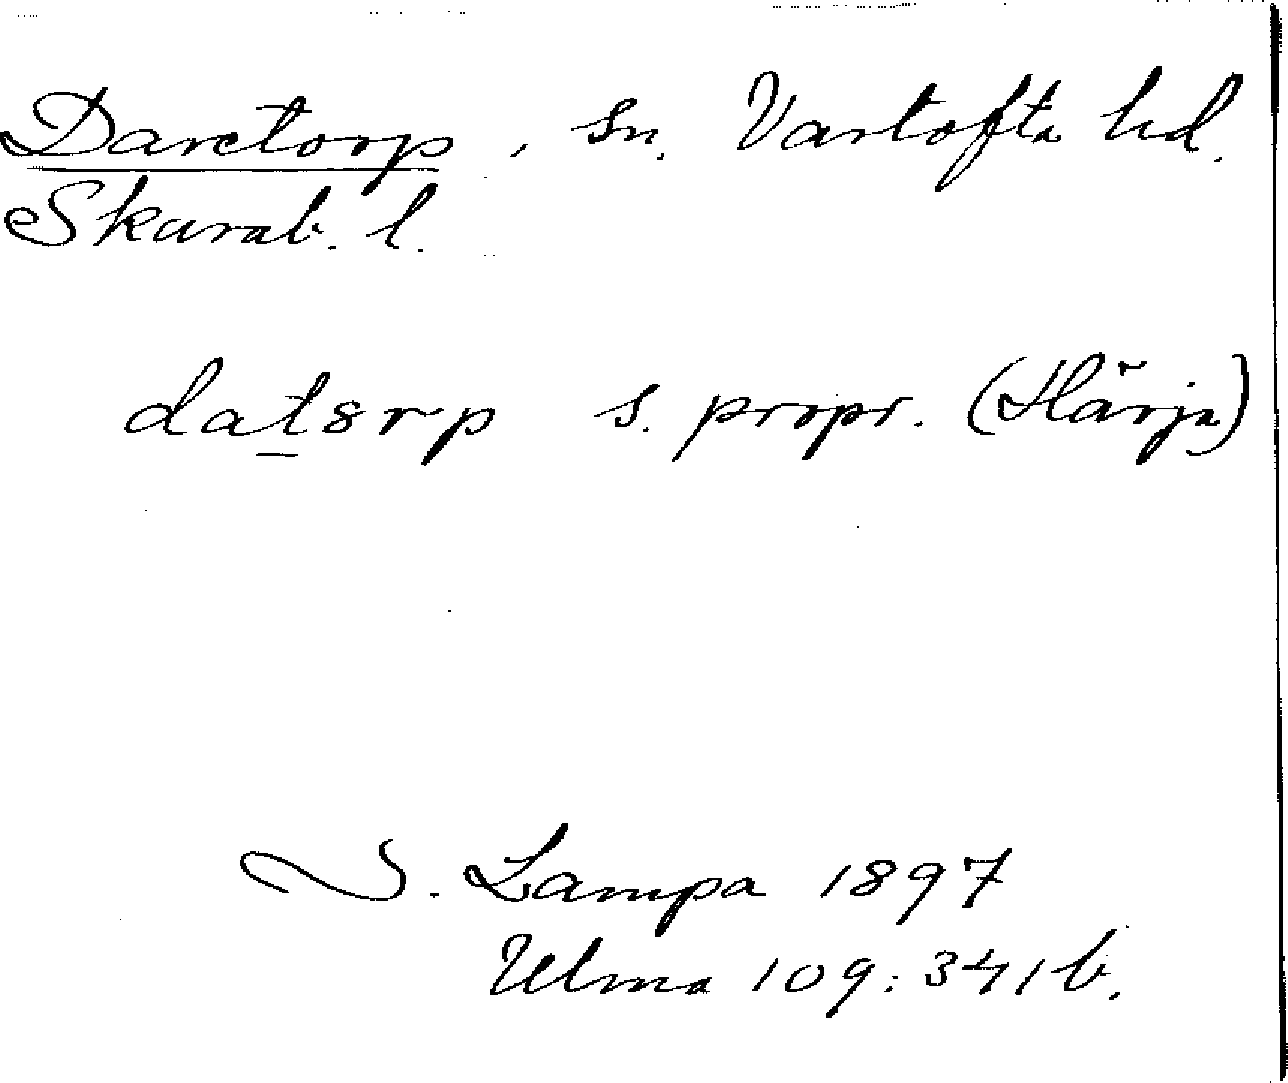 Daretorp, sn. Vartofta hd.
Skarab. l.
datsrp s. propr. (Härja)
S. Lampa 1897
Ulma 109:341 b.